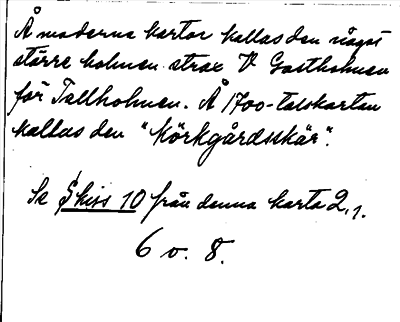 Å moderna kartor kallas den något
större holmen strax V Gastholmen
för Tallholmen. Å 1700-talskartan
kallas den "Körkgårdsskär".
Se Skiss 10 från denna karta 2,1.
6 v. 8.